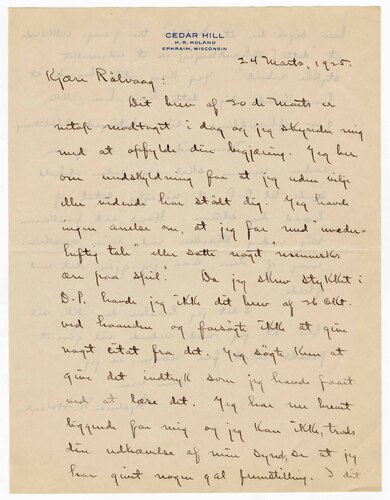 CEDAR HILL
H. R. HOLAND
EPHRAIM, WISCONSIN
24 Marts, 1925.
Kjære Rölvaag:
Dit brev af 20de Marts er
netop modtaget i dag og jeg skynder mig
med at opfylde din begjæring. Jeg ber
om undskyldning for at jeg uden vilje
eller vidende har stödt dig. Jeg havde
ingen anelse om, at jeg far med "uveder-
heftig tale" eller satte noget "menneskes
ære paa spil." Da jeg skrev stykket i
D.P. havde jeg ikke dit brev af 26 Okt.
ved haanden og forsögte ikke at give
noget citat fra det. Jeg sögte kun at
give det indtryk som jeg havde faaet
ved at læse det. Jeg har nu brevet
liggende for mig og jeg kan ikke, trods
din udhævelse af mine synder, se at jeg
har givet nogen gal fremstilling. I dit